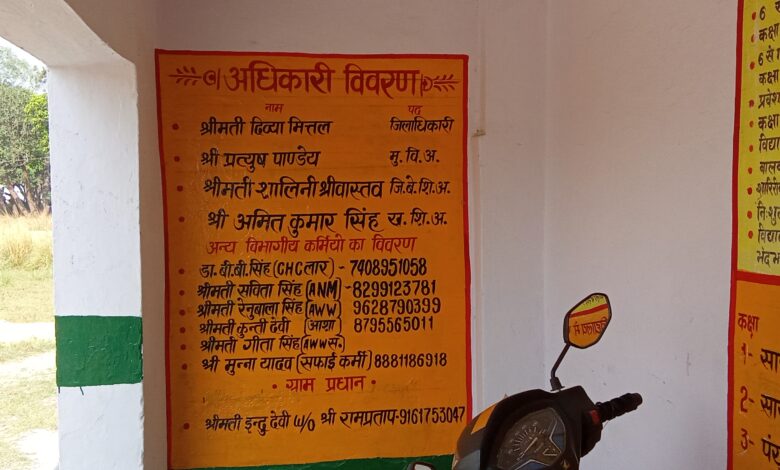 अधिकारी विवरण
नाम पद
श्रीमती दिव्या मित्तल जिलाधिकारी
श्री प्रत्युष पाण्डेय मु. वि. अ.
श्रीमती शालिनी श्रीवास्तव जि. बे. शि. अ.
श्री अमित कुमार सिंह ख. शि. अ.
अन्य विभागीय कर्मियो का विवरण
डा. बी. बी. सिंह (CHC लार) - 7408951058
श्रीमती सविता सिंह (ANM) - 8299123781
श्रीमती रेनुबाला सिंह (AWW) 9628790399
श्रीमती कुन्ती देवी (आशा) 8795565011
श्रीमती गीता सिंह (AWW स.)
श्री मुन्ना यादव (सफाई कर्मी) 8881186918
ग्राम प्रधान
श्रीमती इन्दु देवी W/O श्री रामप्रताप-9161753047
6
कक्षा
6 से
कक्षा
प्रवेश
कक्षा
विद्या
बाल
शारीरि
नि:शु
विद्या
भेदभा
कक्षा
1-
2-
3-